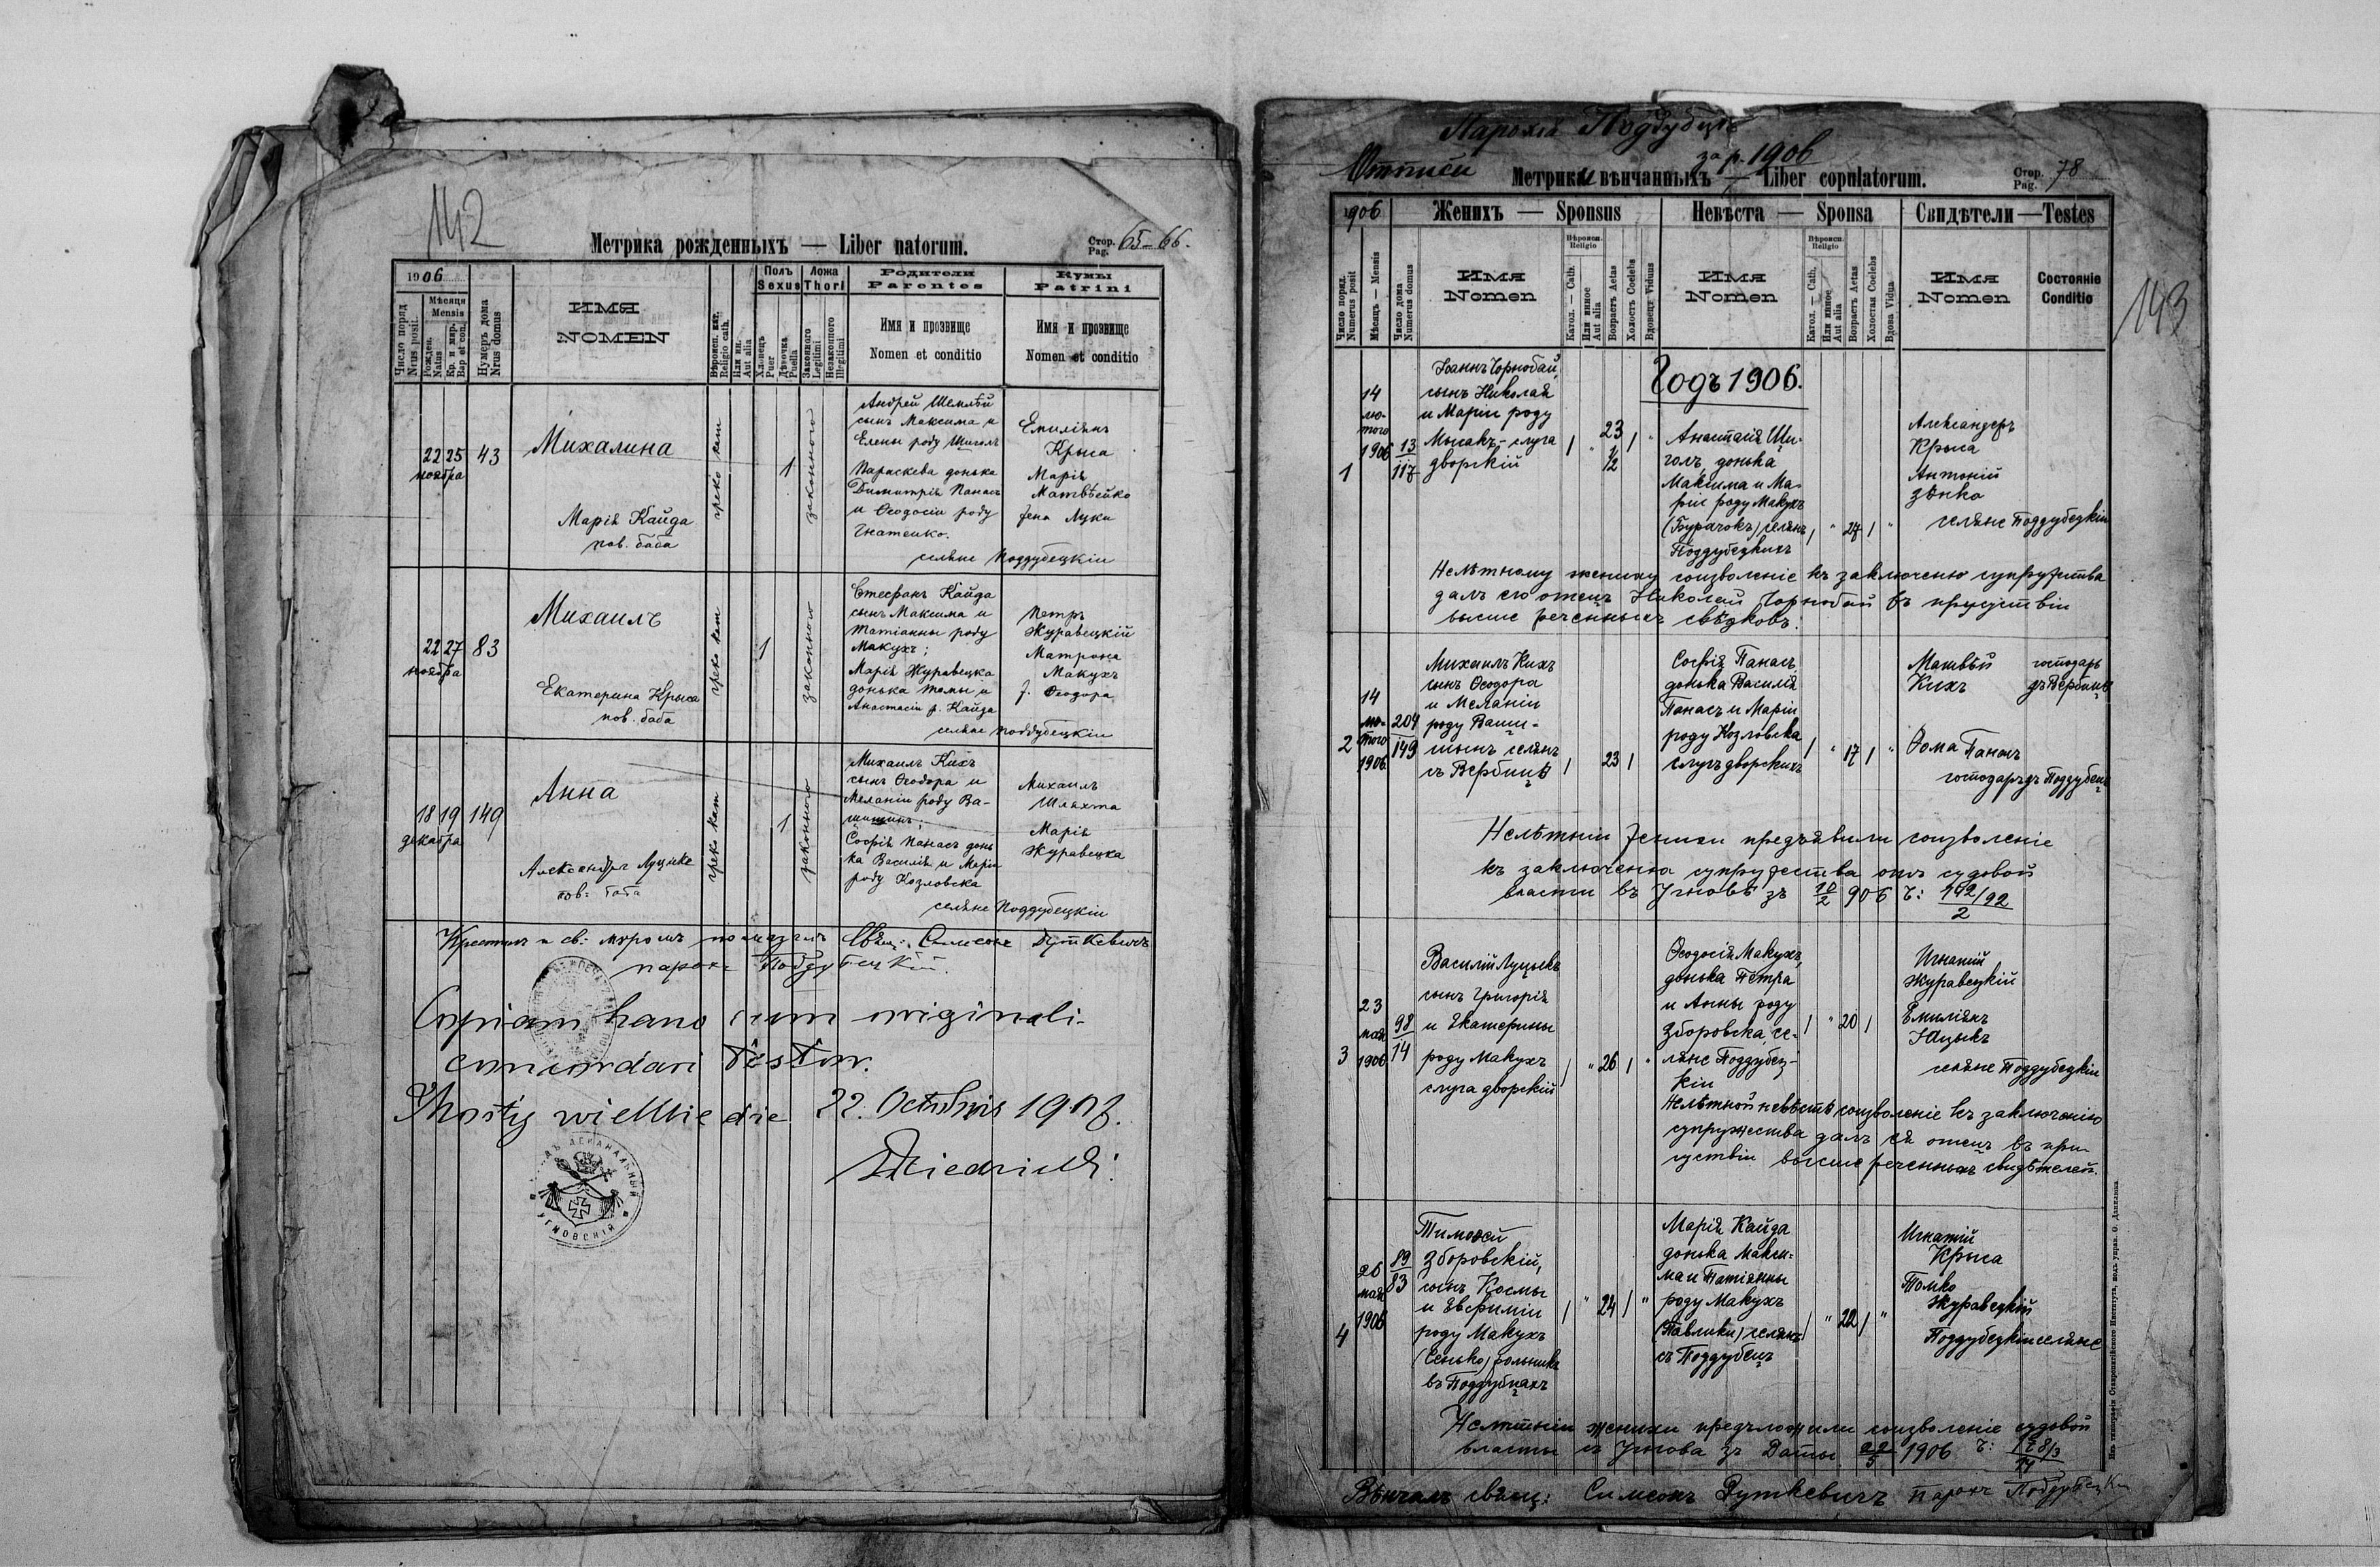 142
Метрика рожденныхъ — Liber natorum.
Стор. Pag. 65-66.
1906
Число поряд Nrus posit.
Мѣсяця Mensis
Рожден. Natus
Кр. и мѵр. Bap et con.
Нумеръ дома Nrus domus
ИМЯ
NOMEN
Вѣроисп. кат. Religio cath.
Или ин. Aut alia
Полъ Sexus
Хлопецъ Puer
Дѣвочка Puella
Ложа Thori
Законного Legitimi
Незаконного Illegitimi
Родители
Parentes
Имя и прозвище
Nomen et conditio
Кумы
Patrini
Имя и прозвище
Nomen et conditio
22 25 ноября
43
Михалина
Марія Кайда
пов. баба
греко кат
1
законного
Андрей Шемлѣй
сынъ Максима и
Елены роду Щиголъ
Параскева донька
Димитрія Панасъ
и Ѳеодосіи роду
Гнатенко.
селяне Поддубецкіи
Емиліянъ
Крыса
Марія
Матвѣйко
жена Луки
22 27 ноября
83
Михаилъ
Екатерина Крыса
пов. баба
греко кат
1
законного
Стефанъ Кайда
сынъ Максима и
Татіанны роду
Макухъ;
Марія Журавецка
донька Томы и
Анастасіи р. Кайда
селяне Поддубецкіи
Петръ
Журавецкій
Матрона
Макухъ
ж. Ѳеодора
18 19 декабря
149
Анна
Александра Луцыкъ
пов: баба
греко кат
1
законного
Михаилъ Кихъ
сынъ Ѳеодора и
Меланіи роду Ва-
шишинъ;
Софія Панасъ донь
ка Василія и Маріи
роду Козловска
селяне Поддубецкіи
Михаилъ
Шляхта
Марія
Журавецка
Крестилъ и св: мѵромъ помазалъ Свящ: Симеонъ Руткевичъ
парохъ Поддубецкій.
Copiam hanc cum originali
concordari testor.
Mosty wielkie die 22. Octobris 1907.
Парохія Поддубцѣ
за р. 1906
Отписи
Метрики вѣнчанныхъ — Liber copulatorum.
Стор. Pag. 78
143
1906
Женихъ — Sponsus
Невѣста — Sponsa
Свидѣтели — Testes
Число поряд. Numerus posit
Мѣсяцъ — Mensis
Число дома Numerus domus
ИМЯ
Nomen
Вѣроисп. Religio
Катол. — Cath.
Или инное Aut alia
Возрастъ Aetas
Холостъ Coelebs
Вдовецъ Viduus
ИМЯ
Nomen
Вѣроисп. Religio
Катол. — Cath.
Или инное Aut alia
Возрастъ Aetas
Холостая Coelebs
Вдова Vidua
ИМЯ
Nomen
Состояніе
Conditio
Годъ 1906.
1
14 лютого 1906
13 117
Іоаннъ Чорнобай,
сынъ Николая
и Маріи роду
Мысакъ,- слуга
дворскій
23 1/2
Анастасія Щи-
голъ, донька
Максима и Ма-
ріи роду Макухъ
(Бурачокъ) селянъ
Поддубецкихъ
27
Александеръ
Крыса
Антоній
Зѣнко
селяне Поддубецкіи
Нелѣтному жениху соизволеніе къ заключенію супружества
далъ его отецъ Николай Чорнобай въ присутствіи
высше реченныхъ свѣдковъ.
2
14 лютого 1906
204 149
Михаилъ Кихъ
сынъ Ѳеодора
и Меланіи
роду Ваши-
шынъ селянъ
съ Вербицѣ
23
Софія Панасъ
донька Василія
Панасъ и Маріи
роду Козловска
слугъ дворскихъ
17
Матвѣй
Кихъ
господарь
зъ Вербицѣ
Ѳома Панасъ
господарь зъ Поддубец
Нелѣтніи женихи предъявили соизволеніе
къ заключенію супружества отъ судовой
власти въ Угновѣ зъ 10/2 906 Ч: 142/92 2
3
23 мая 1906
98 14
Василій Луцыкъ
сынъ Григорія
и Екатерины
роду Макухъ
слуга дворскій
26
Ѳеодосія Макухъ,
донька Петра
и Анны роду
Зборовска, се-
ляне Поддубец-
кіи
20
Игнатій
Журавецкій
Емиліянъ
Яцыкъ
селяне Поддубецкіи
Нелѣтной невѣстѣ соизволеніе къ заключенію
супружества далъ ея отецъ въ при-
сутствіи высше реченныхъ свидѣтелей.
4
26 мая 1906
89 83
Тимоѳей
Зборовскій,
сынъ Космы
и Евфиміи
роду Макухъ
(Сенько) рольникъ
въ Поддубцахъ
24
Марія Кайда
донька Макси-
ма и Татіянны
роду Макухъ
(Павлики) селянъ
съ Поддубецъ
22
Игнатій
Крыса
Томко
Журавецкій
Поддубецкіи селяне
Нелѣтніи женихи предъложили соизволеніе судовой
власты съ Угнова зъ Даты 22/5 1906 Ч:
Вѣнчалъ свящ: Симеонъ Руткевичъ парохъ Поддубецкій